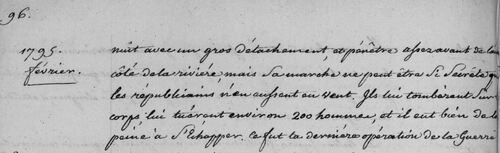 96.
1795.
février.
nuit avec un gros détachement, et pénètre assez avant de la
côté de la riviére, mais sa marche ne peut être si secréte q
les républiains n'en eussent eu vent. Ils lui tombérent sur
corps lui tuérent environ 200 hommes, et il eut bien de la
peine à s'échapper. ce fut la derniére opération de la Guerre